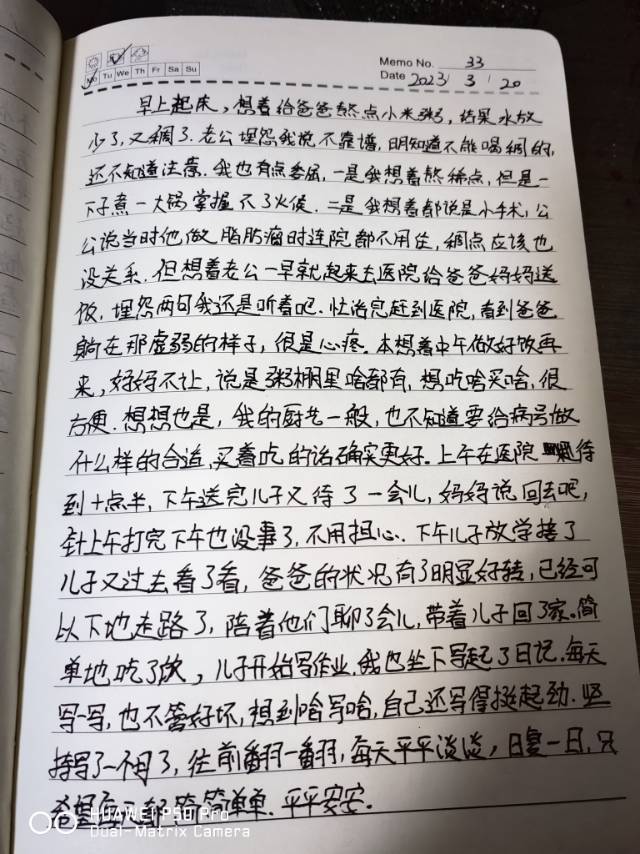 Memo No. 33
Mo Tu We Th Fr Sa Su
Date 2023 / 3 / 20
早上起床，想着给爸爸熬点小米粥，结果水放
少了，又稠了．老公埋怨我说不靠谱，明知道不能喝稠的，
还不知道注意．我也有点委屈，一是我想着熬稀点，但是一
下子煮一大锅掌握不了火侯．二是我想着都说是小手术，公
公说当时他做脂肪瘤时连院都不用住，稠点应该也
没关系．但想着老公一早就起来去医院给爸爸妈妈送
饭，埋怨两句我还是听着吧．忙活完赶到医院，看到爸爸
躺在那虚弱的样子，很是心疼．本想着中午做好饭再
来，妈妈不让，说是粥棚里啥都有，想吃啥买啥，很
方便．想想也是，我的厨艺一般，也不知道要给病号做
什么样的合适，买着吃的话确实更好．上午在医院待
到十点半，下午送完儿子又待了一会儿，妈妈说回去吧，
针上午打完下午也没事了，不用担心．下午儿子放学接了
儿子又过去看了看，爸爸的状况有了明显好转，已经可
以下地走路了，陪着他们聊了会儿，带着儿子回了家．简
单地吃了饭，儿子开始写作业．我也坐下写起了日记．每天
写一写，也不管好坏，想到啥写啥，自己还写得挺起劲．坚
持写了一个月了，往前翻一翻，每天平平淡淡，日复一日，只
希望每天都简简单单．平平安安．
HUAWEI P30 Pro
Dual-Matrix Camera